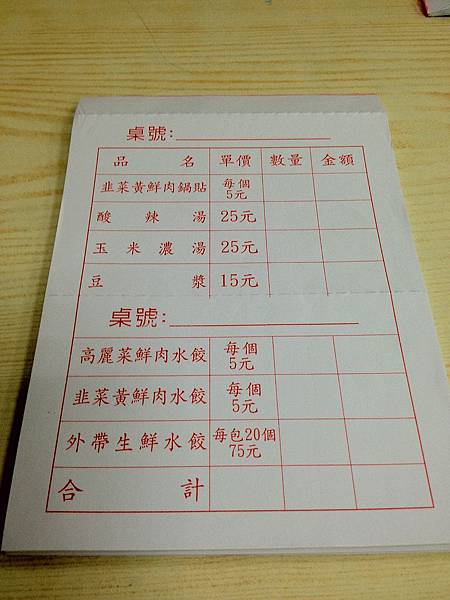 桌號:
品名 單價 數量 金額
韭菜黃鮮肉鍋貼 每個5元
酸辣湯 25元
玉米濃湯 25元
豆漿 15元
桌號:
高麗菜鮮肉水餃 每個5元
韭菜黃鮮肉水餃 每個5元
外帶生鮮水餃 每包20個75元
合計